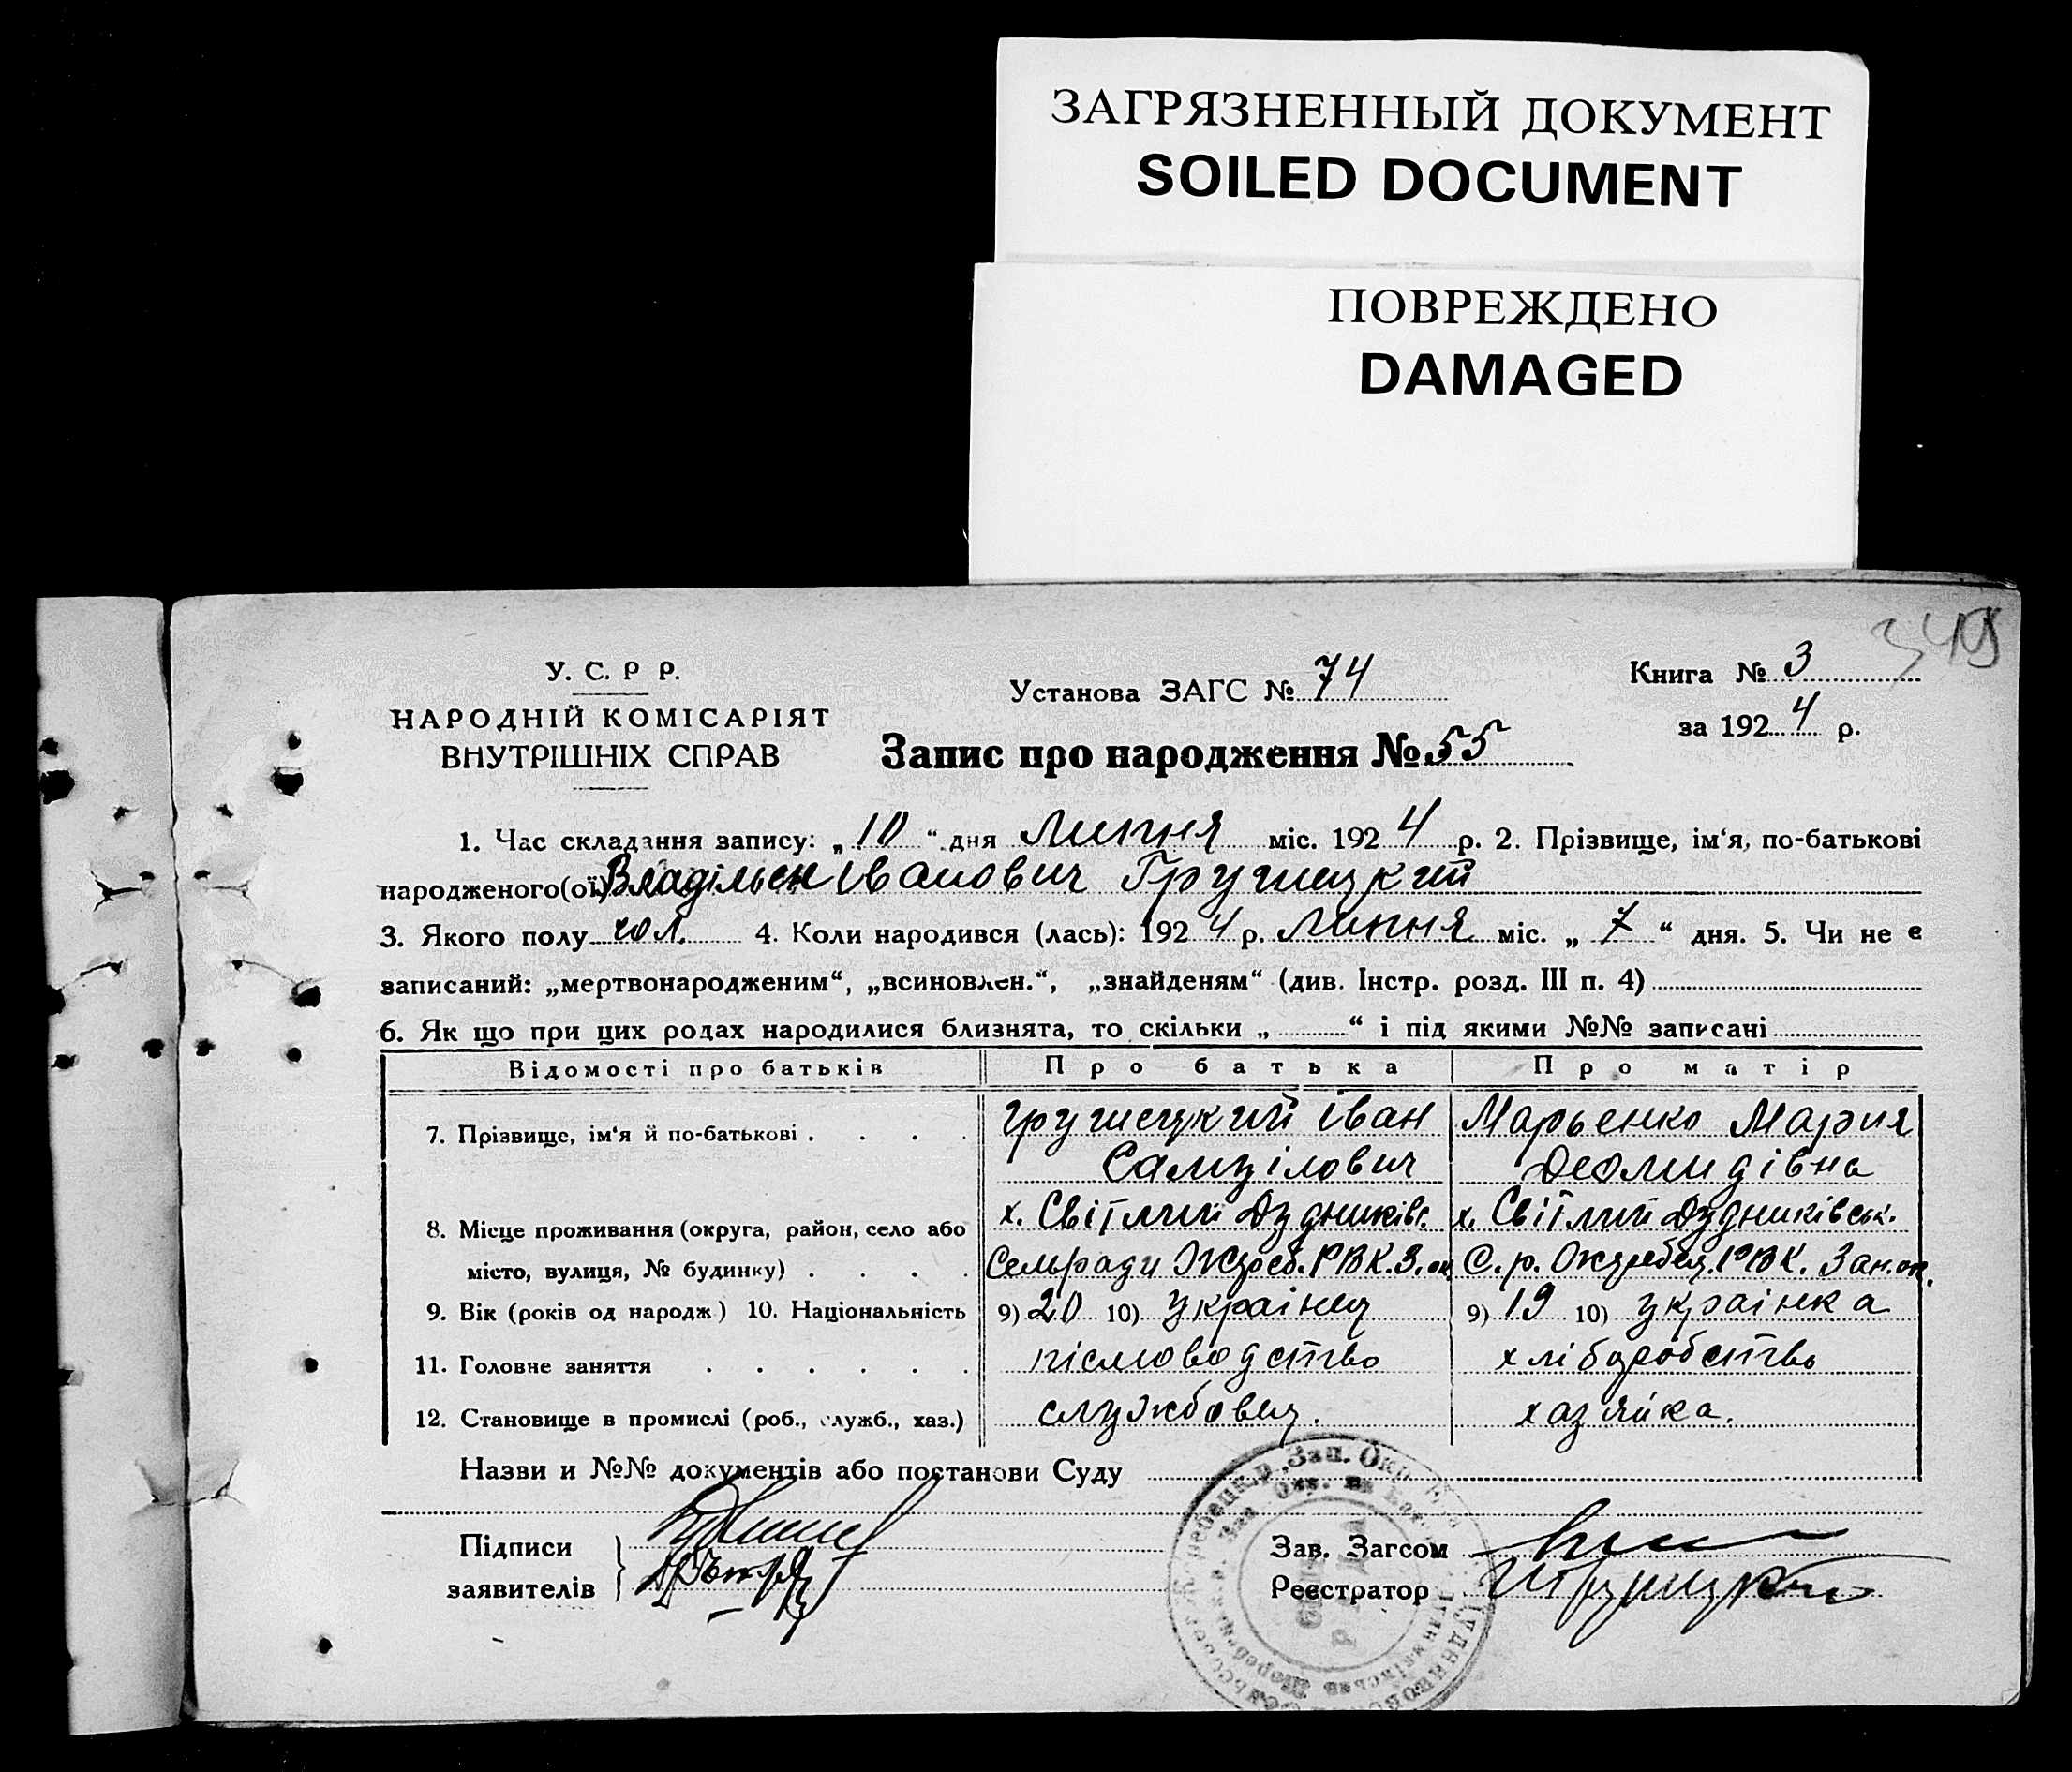 ЗАГРЯЗНЕННЫЙ ДОКУМЕНТ
SOILED DOCUMENT
ПОВРЕЖДЕНО
DAMAGED
У. С. Р Р.
НАРОДНІЙ КОМІСАРІЯТ
ВНУТРІШНІХ СПРАВ
Установа ЗАГС № 74
Книга № 3
за 1924 р.
Запис про народження № 55
1. Час складання запису: „ 10 “ дня Липня міс. 1924 р. 2. Прізвище, ім‘я, по-батькові
народженого(ої) Владільен Іванович Грушецкий
3. Якого полу чол. 4. Коли народився (лась): 1924 р. Липня міс. „ 7 “ дня. 5. Чи не є
записаний: „мертвонародженим“, „всиновлен.“, „знайденям“ (див. Інстр. розд. III п. 4)
6. Як що при цих родах народилися близнята, то скільки „ “ і під якими №№ записані
Відомості про батьків Про батька Про матір
7. Прізвище, ім‘я й по-батькові . . . . Грушецкий Іван Марьенко Мария
Самуілович Деомидівна
8. Місце проживання (округа, район, село або х. Світлий Дудниківс. х. Світлий Дудниківськ.
місто, вулиця, № будинку) . . . . Сельради Жереб. РВК. З. ок. С. р. РВК. Зап. ок.
9. Вік (років од народж) 10. Національність 9) 20 10) українец 9) 19 10) українка
11. Головне заняття . . . . . . письмоводство хліборобство
12. Становище в промислі (роб., служб., хаз.) службовец. хазяйка.
Назви и №№ документів або постанови Суду
Підписи
заявителів
Зав. Загсом
Реєстратор